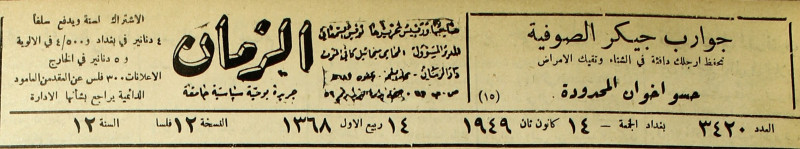 جوارب جيكر الصوفية
تحفظ ارجلك دافئة في الشتاء وتقيك الامراض
حسو اخوان المحدودة
(١٥)
صاحبها ورئيس تحريرها توفيق السمعاني
المدير المسؤول: المحامي
الزمان
جريدة يومية سياسية جامعة
الاشتراك لسنة ويدفع سلفاً
٤ دنانير في بغداد و ٤/٥٠٠ في الالوية
و ٥ دنانير في الخارج
الاعلانات ٣٠٠ فلس عن العقد من العامود
الدائمية يراجع بشأنها الادارة
العدد ٣٤٢٠ بغداد الجمعة – ١٤ كانون ثان ١٩٤٩ ١٤ ربيع الاول ١٣٦٨ النسخة ١٢ فلسا السنة ١٢